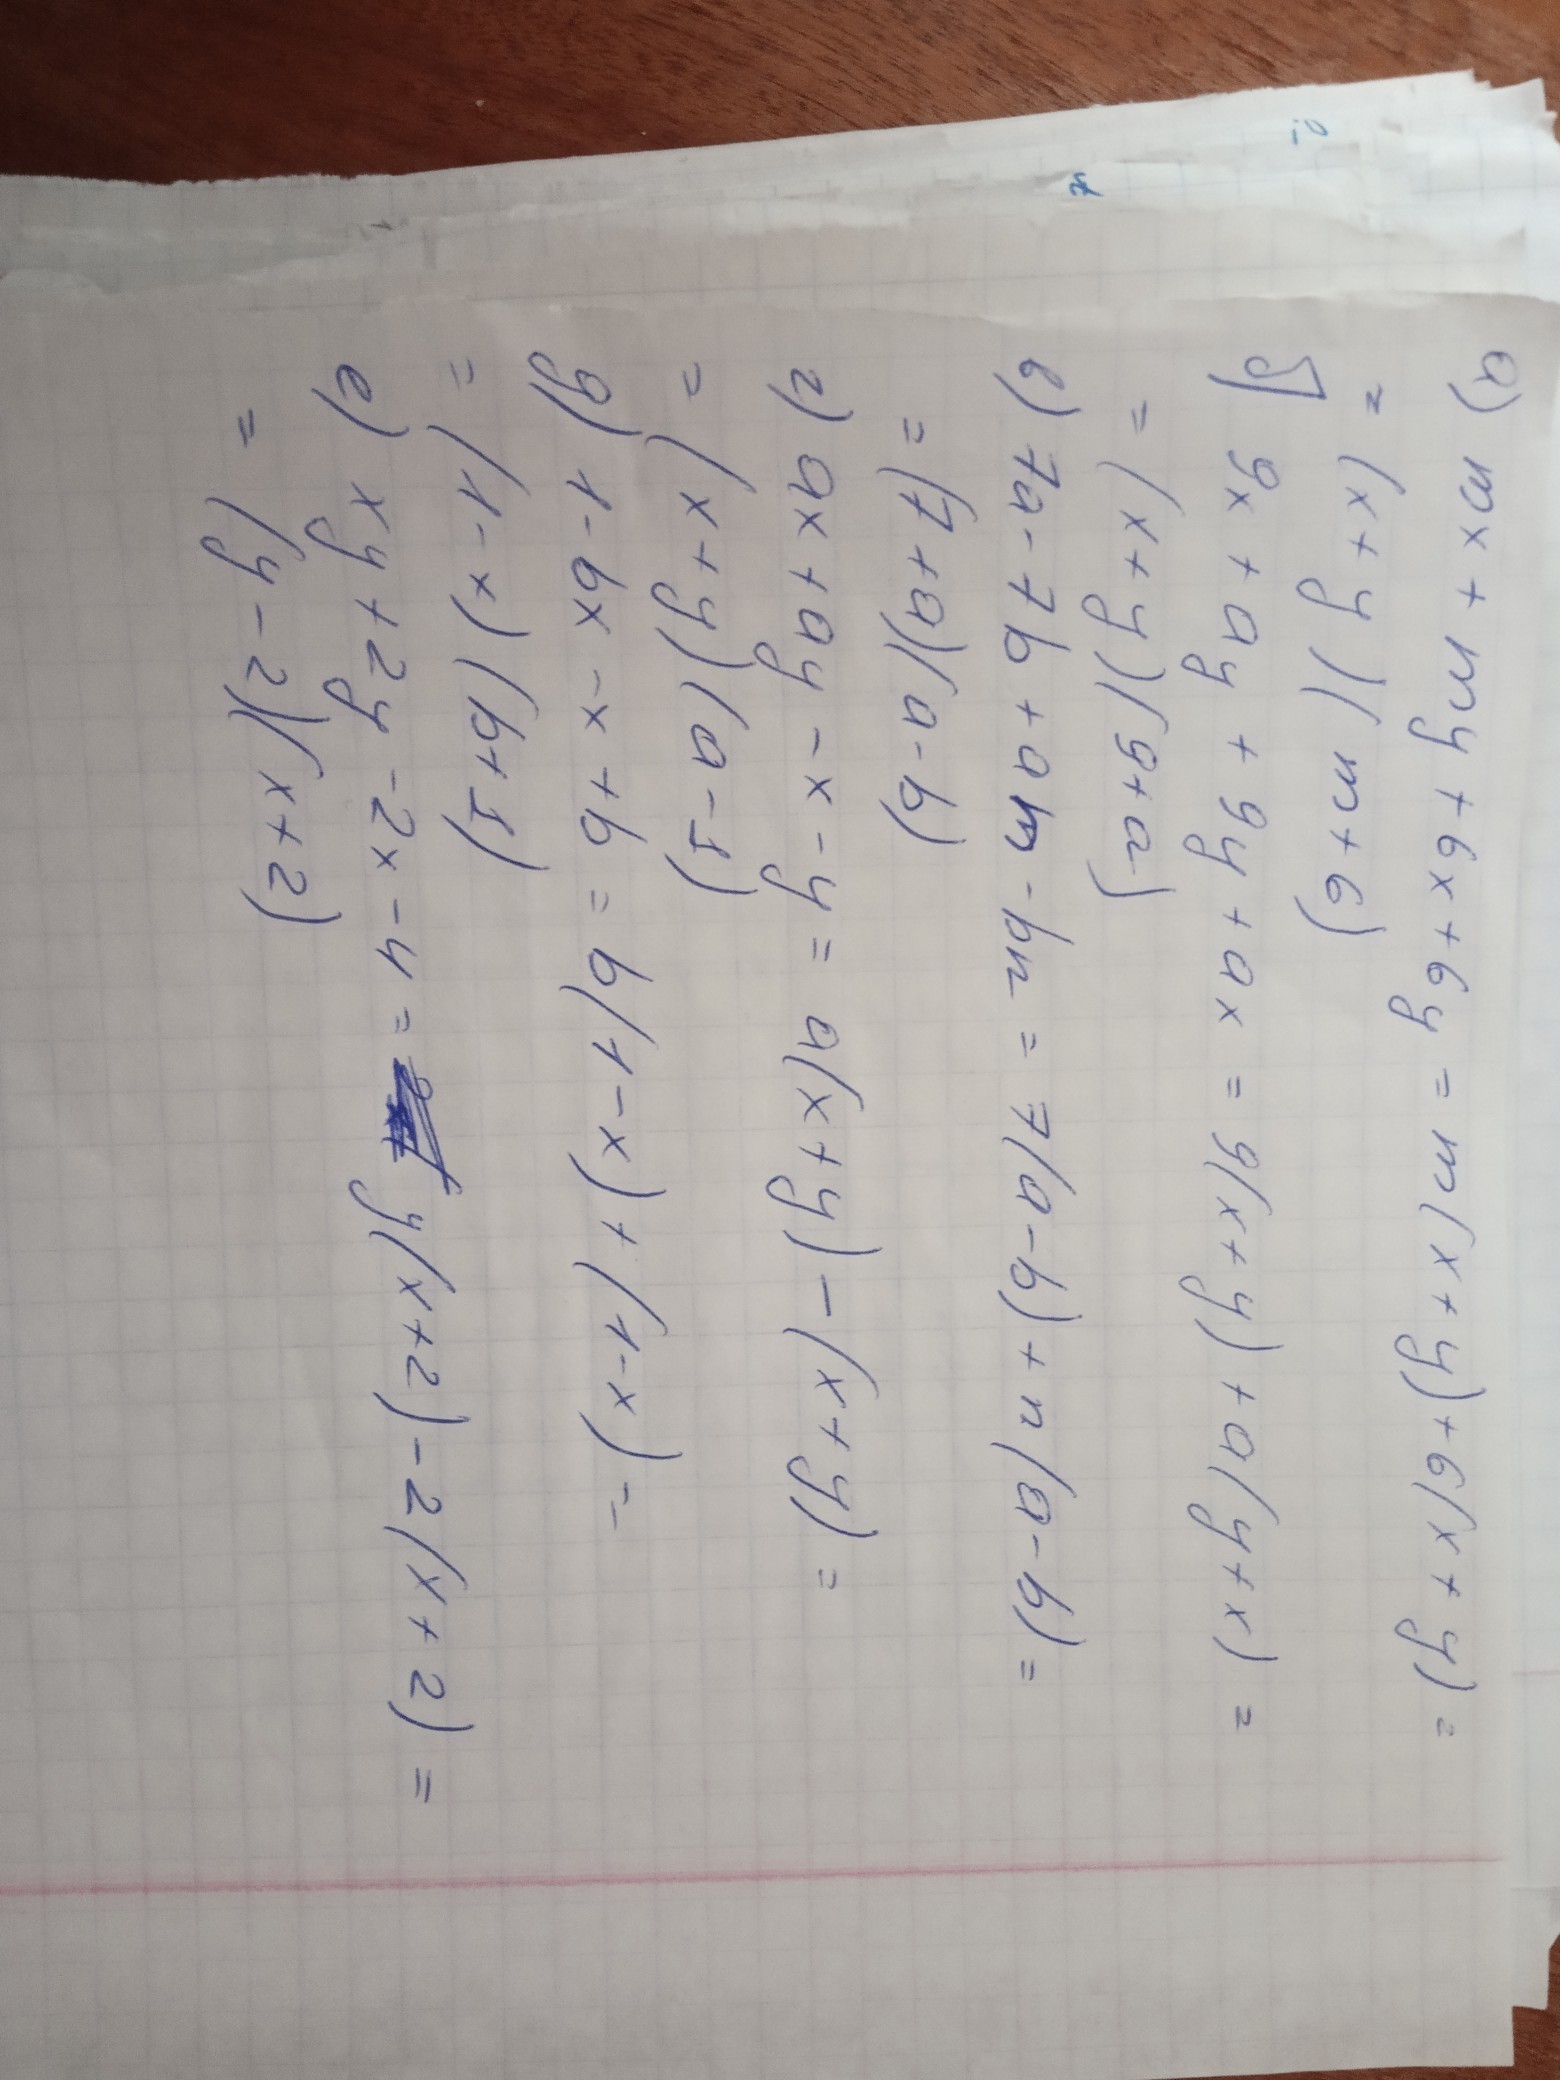 а) mx + my + 6x + 6y = m(x + y) + 6(x + y) =
= (x + y)(m + 6)
б) 9x + ay + 9y + ax = 9(x + y) + a(y + x) =
= (x + y)(9 + a)
в) 7a - 7b + an - bn = 7(a - b) + n(a - b) =
= (7 + a)(a - b)
г) ax + ay - x - y = a(x + y) - (x + y) =
= (x + y)(a - 1)
д) 1 - bx - x + b = b(1 - x) + (1 - x) =
= (1 - x)(b + 1)
е) xy + 2y - 2x - 4 = y(x + 2) - 2(x + 2) =
= (y - 2)(x + 2)